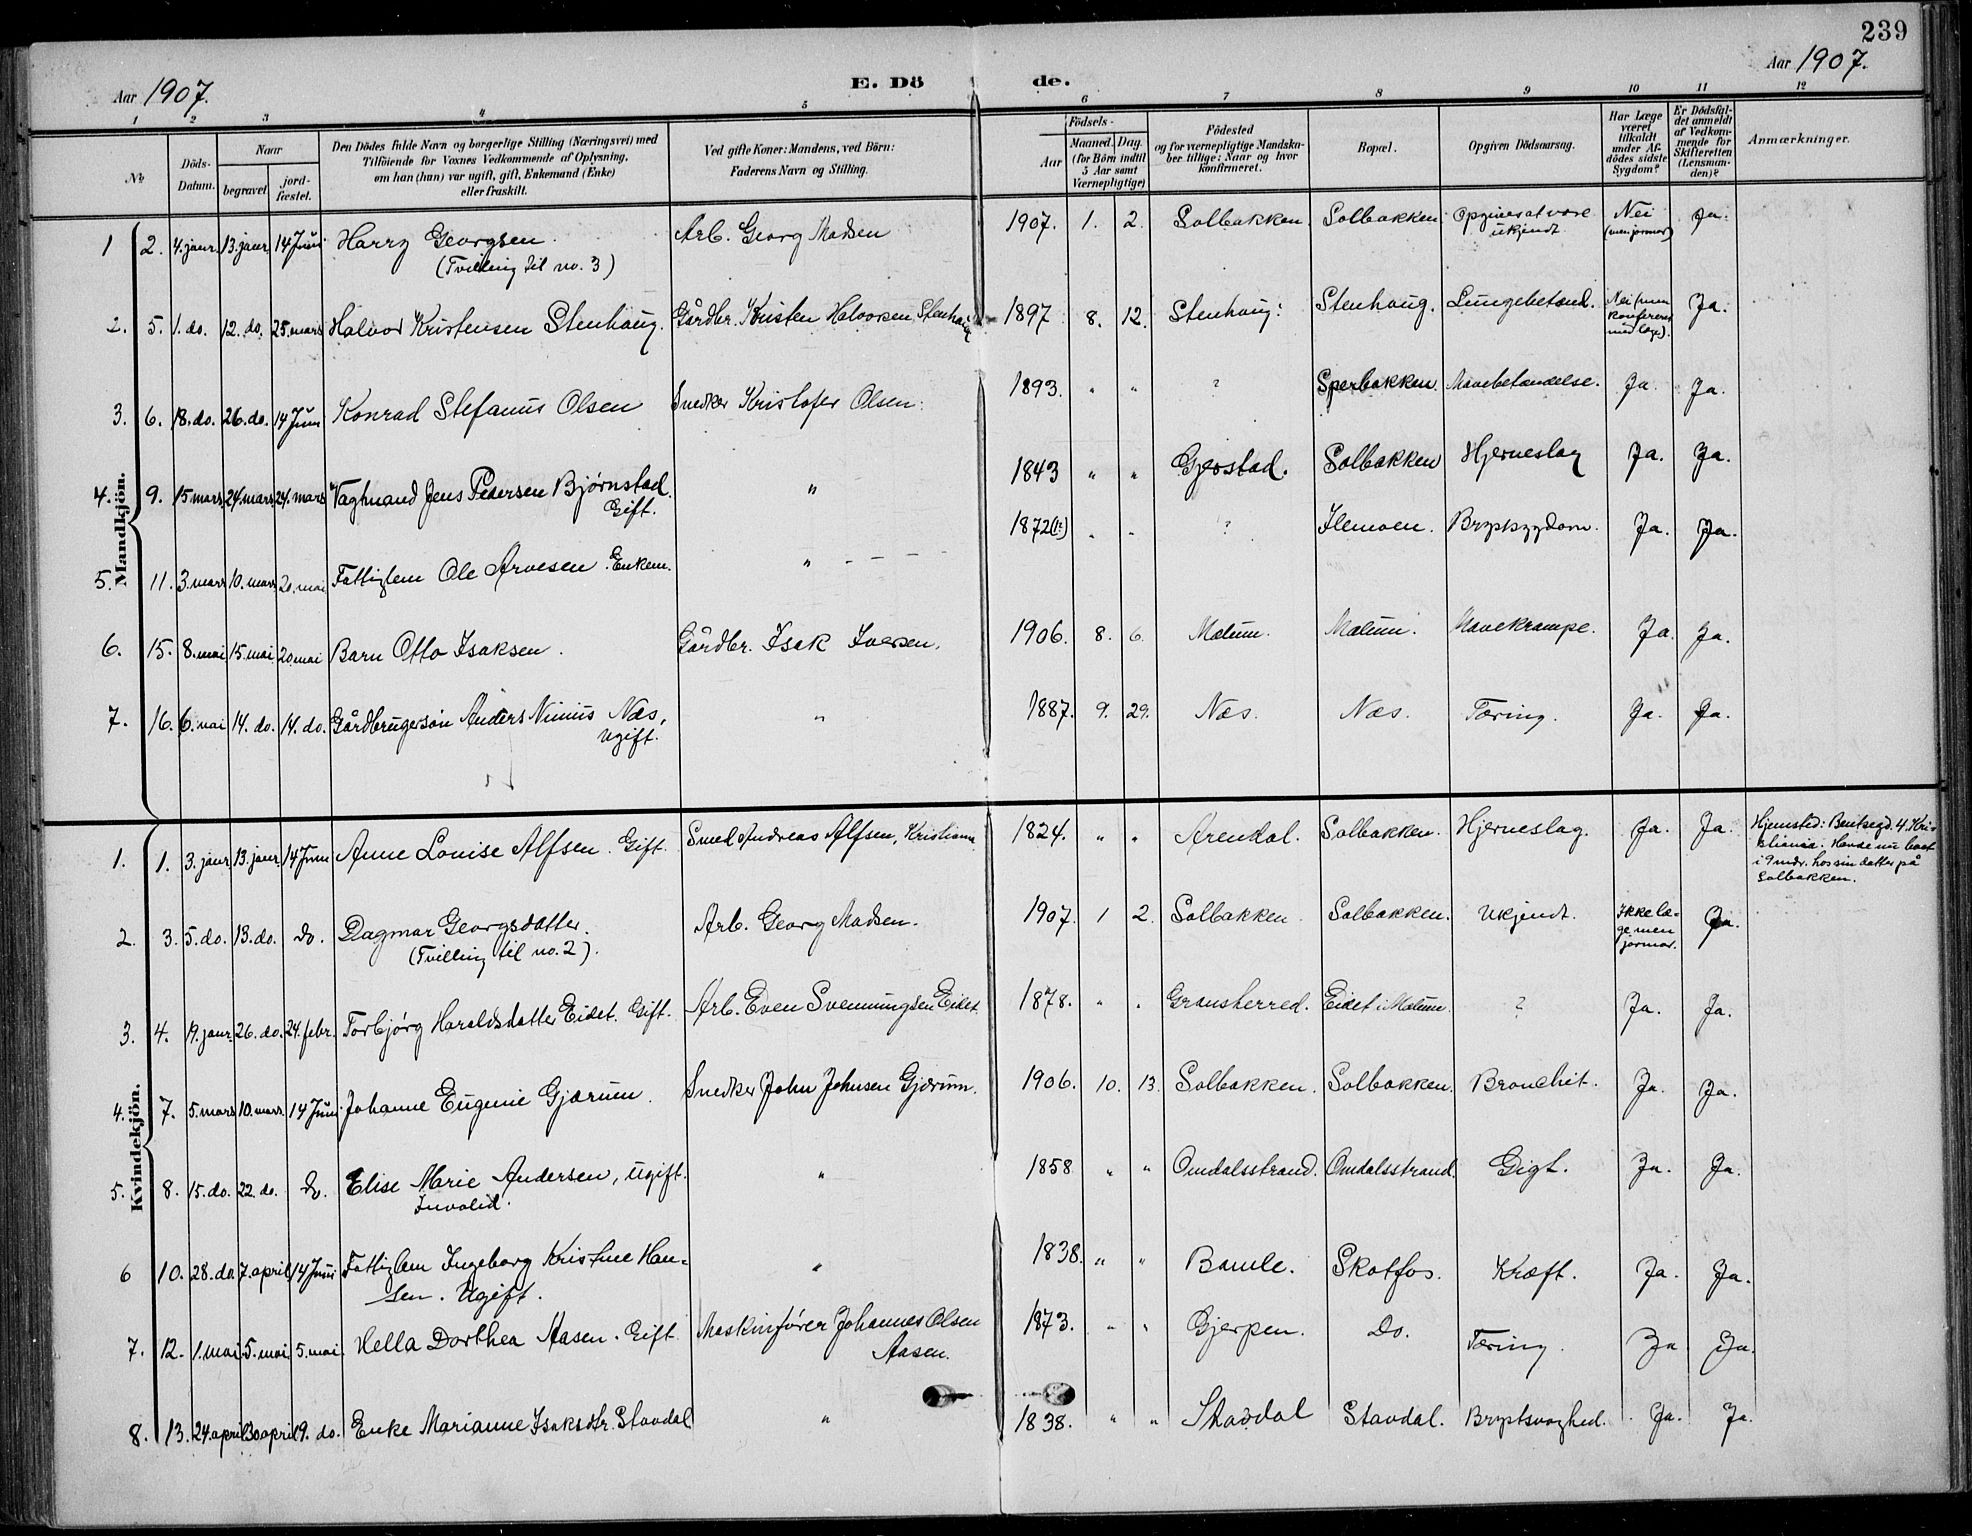 239
Aar 1907.
E. Dö
de.
Aar 1907.
1 2 3 4 5 6 7 8 9 10 11 12
No
Döds-Datum.
Naar
begravet
jord-fæstet.
Den Dödes fulde Navn og borgerlige Stilling (Næringsvei) med
Tilföiende for Voxnes Vedkommende af Oplysning,
om han (hun) var ugift, gift, Enkemand (Enke)
eller fraskilt.
Ved gifte Koner: Mandens, ved Börn:
Faderens Navn og Stilling.
Födsels-
Aar
Maaned. Dag.
(for Börn indtil
5 Aar samt
Værnepligtige)
Födested
og for værnepligtige Mandska-
ber tillige: Naar og hvor
konfirmeret.
Bopæl.
Opgiven Dödsaarsag.
Har Læge
været
tilkaldt
under Af-
dödes sidste
Sygdom?
Er Dödsfal-
det anmeldt
af Vedkom-
mende for
Skifteretten
(Lensman-
den)?
Anmærkninger.
Mandkjön.
1 2. 4. janr. 13. janr. 14 Juni Harry Georgsen. Arb. Georg Madsen 1907. 1. 2. Solbakken. Solbakken. Opgives at være Nei Ja.
(Tvilling til no. 3) ukjendt (men jormor)
2. 5. 1. do. 12. do. 25. mars Halvor Kristensen Stenhaug. Gårdbr. Kristen Halvorsen Stenhaug 1897 8. 12. Stenhaug. Stenhaug. Lungebetænd. Nei (men Ja.
konferert
med læge).
3. 6. 18. do. 26. do. 14 Juni Konrad Stefanus Olsen Snedker Kristofer Olsen. 1893. " " ? Sperbakken. Mavebetændelse. Ja. Ja.
4. 9. 15 mars 24. mars 24. mars Vagtmand Jens Pedersen Bjørnstad. " 1843 " " Gjerstad. Solbakken Hjerneslag Ja. Ja.
Gift.
5. 11. 3. mars 10. mars 20. mai Fattiglem Ole Arvesen. Enkem. " 1872 (?) " " ? Ilemoen. Brystsygdom. Ja. Ja.
6. 15. 8. mai 15. mai 20 mai Barn Otto Isaksen. Gårdbr. Isak Iversen. 1906. 8. 6. Mælum. Mælum. Mavekrampe. Ja. Ja.
7. 16. 6. mai 14. do. 14. do. Gårdbrugersøn Anders Nimus Næs, " 1887. 9. 29. Næs. Næs. Tæring. Ja. Ja.
ugift.
Kvindekjön.
1. 1. 3. janr. 13. janr. 14 Juni Anne Lovise Alfsen. Gift. Smed Andreas Alfsen, Kristiania 1824. " " Arendal. Solbakken. Hjerneslag. Ja. Ja. Hjemsted: Bentsegd. 4. Kri-
stiania. Havde nu boet
i 9 mdr. hos sin datter på
Solbakken.
2. 3. 5. do. 13. do. do. Dagmar Georgsdatter. Arb. Georg Madsen. 1907. 1 2. Solbakken. Solbakken. Ukjendt. Ikke læ- Ja.
(Tvilling til no. 2). ge men
jormor.
3. 4. 19. janr. 26. do. 24. febr. Torbjørg Haraldsdatter Eidet. Gift. Arb. Even Svennungsen Eidet 1878. " " Gransherred. Eidet i Mælum. ? Ja. Ja.
4. 7. 5. mars 10. mars. 14 Juni Johanne Eugenie Gjærum. Snedker John Johnsen Gjærum. 1906. 10. 13. Solbakken. Solbakken. Bronchit. Ja. Ja.
5. 8. 15. do. 22. do. do. Elise Marie Andersen, ugift. " 1858 " " Omdalsstrand. Omdalsstrand. Gigt. Ja. Ja.
Invalid.
6 10. 28. do. 7. april 14 Juni Fattiglem Ingeborg Kristine Han- " 1838. " " Bamle. Skotfos. Kræft. Ja. Ja.
sen. Ugift.
7. 12. 1. mai 5. mai 5. mai. Hella Dorthea Aasen. Gift. Maskinfører Johannes Olsen 1873. " " Gjerpen. Do. Tæring. Ja Ja.
Aasen.
8. 13. 24. april 30 april 19. do. Enke Marianne Isaksdtr. Stavdal " 1838. " " Stavdal Stavdal. Brystsvaghed. Ja. Ja.